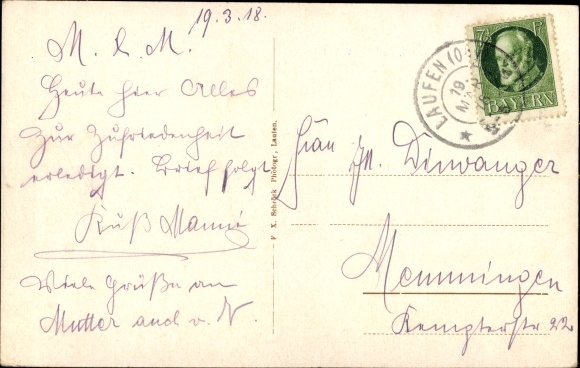 19.3.18.
M. l. M.
Heute hier Alles
zur Zufriedenheit
erledigt. Brief folgt.
Kuß Manni
Viele Grüße an
Mutter auch v. N.
F. X. Schrök Photogr, Laufen.
7½ PF
BAYERN
LAUFEN (O
19
MAR
Frau Dinvanger
Memmingen
Kempterstr 22